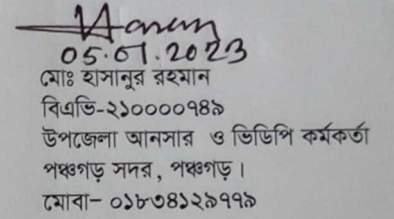 05.01.2023
মোঃ হাসানুর রহমান
বিএভি-২১০০০০৭৪৯
উপজেলা আনসার ও ভিডিপি কর্মকর্তা
পঞ্চগড় সদর, পঞ্চগড়।
মোবা- ০১৮৩৪১২৯৭৭৯